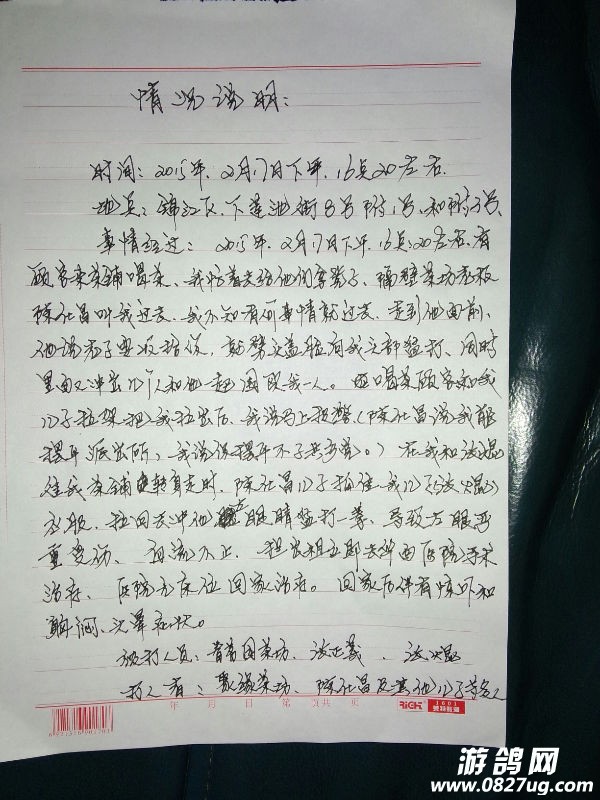 情况说明:
时间: 2015年. 2月17日下午. 16点20左右.
地点: 锦江区. 下莲池街8号附1号. 和附3号.
事情经过: 2015年. 2月17日下午. 16点20左右. 有
顾客来茶铺喝茶. 我忙着去给他们拿凳子. 隔壁茶坊老板
陈社昌叫我过去. 我不知有何事情就过去. 走到他面前.
他说老子要收拾你. 就劈头盖脸向我头部猛打. 同时
里面又冲出几个人和他一起围殴我一人. 喝茶顾客和我
儿子拉架把我拉出后. 我说马上报警(陈社昌说我能
摆平派出所. 我说你摆平不了
往我茶铺转身走时. 陈社昌儿子拍住我儿
衣服. 拉回去冲他眼睛猛打一拳. 导致左眼严
重受伤. 血流不止. 立即去医院
治疗. 医院无床位回家治疗。 回家后伴有惊吓和
胸闷. 头晕症状。
被打人员: 茶坊.
打人者: 聚缘茶坊. 陈社昌及其他儿子等多人
年 月 日 第 页共 页
RiCH 1601
游鸽网
www.0827ug.com